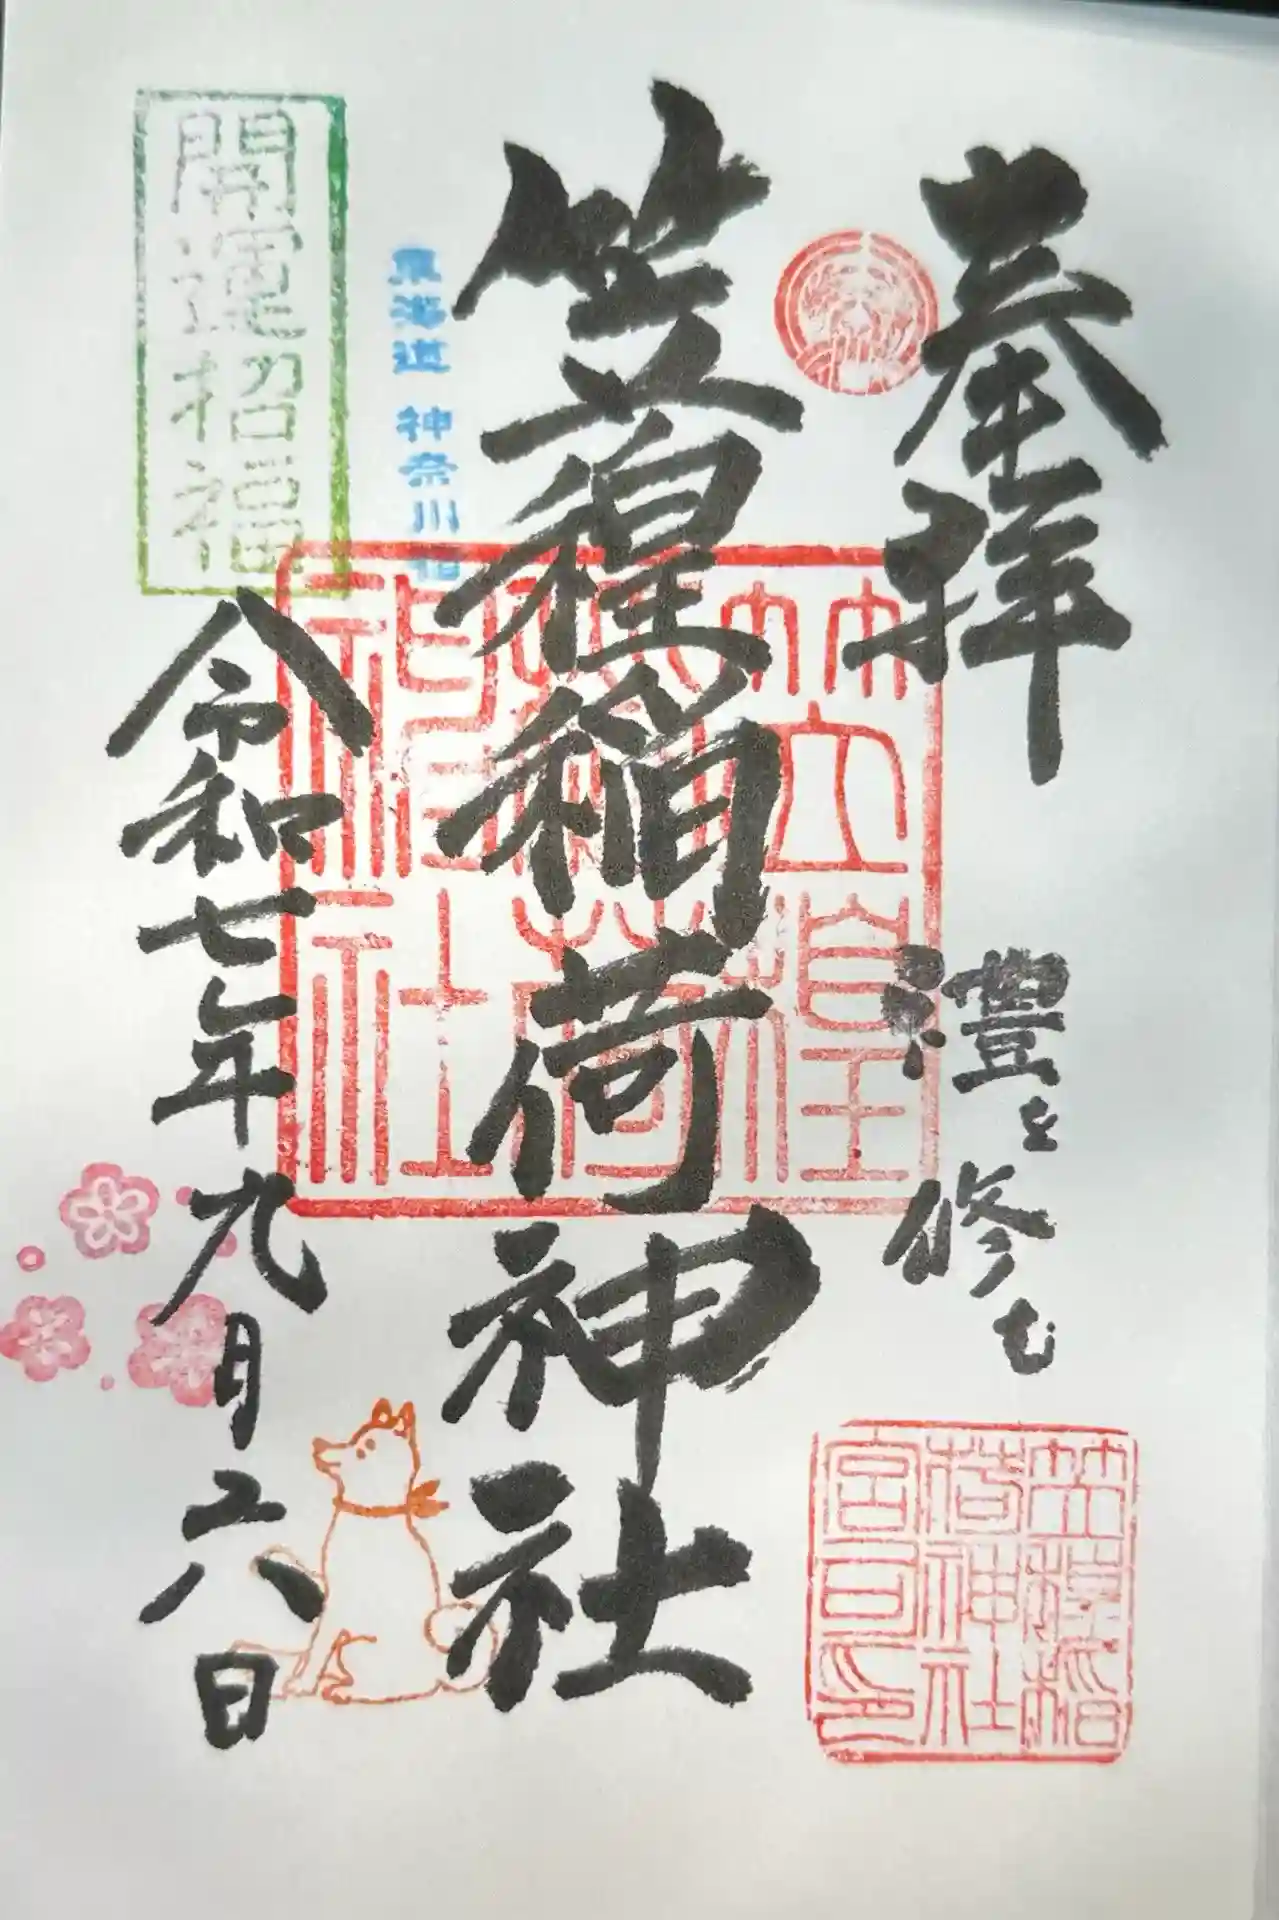 奉拝
禮を修む
笠䅣稲荷神社
東海道 神奈川宿
開運招福
令和七年九月二六日
笠䅣稲荷神社
笠䅣稲荷神社宮司印